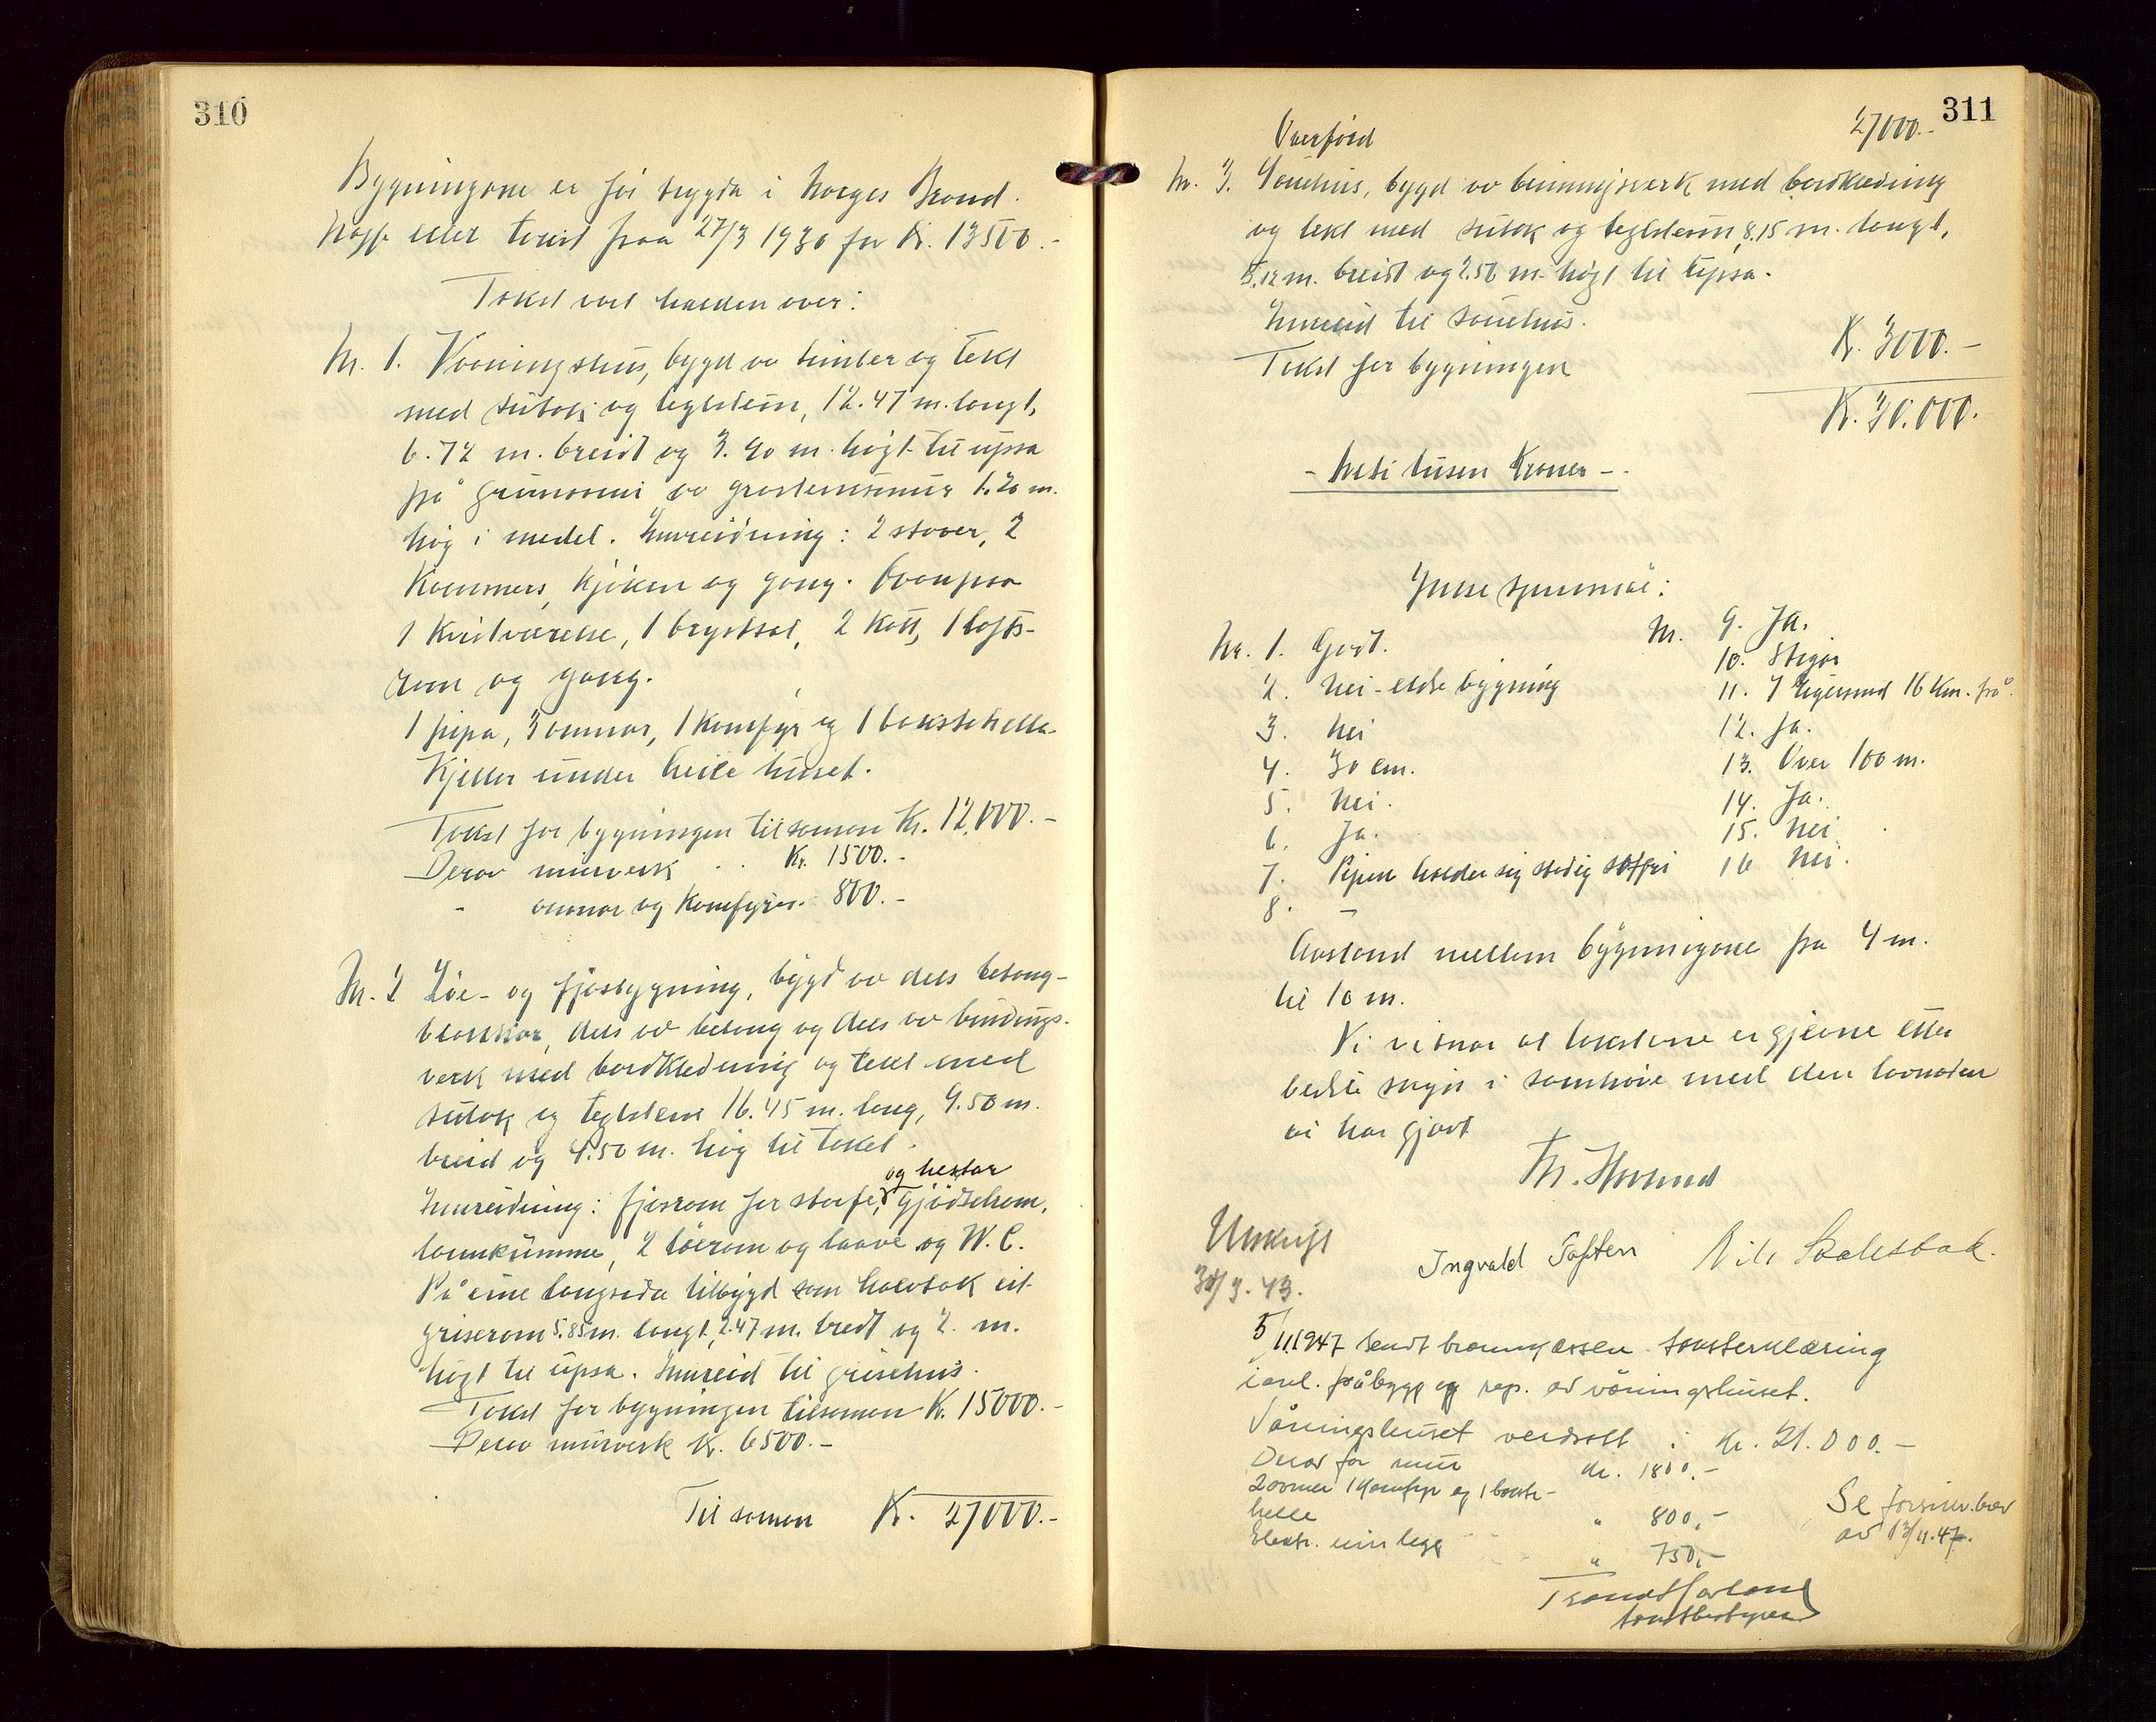 310
Bygningane er för trygda i Norges Brand-
kasse etter takst fraa 27/3 1930 for Kr. 13500.-
Takst vart halden over:
Nr. 1. Vaaningshus, bygd av timber og tekt
med sutak og teglstein, 12.47 m. langt,
6.72 m. breidt og 3.90 m. högt til upsa
på grunnmur av graasteinsmur 1.20 m.
hög i medel. Innreidning: 2 stover, 2
Kammers, kjöken og gang. Ovanpaa
1 Kvistværelse, 1 brystsal, 2 Kott, 1 lofts-
rom og gang.
1 pipa, 3 omnar, 1 Komfyr og 1 bakstehella
Kjellar under heile huset.
Takst for bygningen tilsaman Kr. 12.000.-
Derav murverk Kr. 1500.-
- omnar og Komfyr 800.-
Nr. 2 Löe- og fjösbygning, bygd av dels betong-
blokkar, dels av betong og dels av bindings-
verk med bordkledning og tekt med
sutak og teglstein 16.45 m. lang, 9.50 m.
breid og 4.50 m. hög til taket.
og hestar
Innreidning: fjösrom for storfe, gjödselrom,
lannkumme, 2 löerom og laave og W.C.
På eine langsida tilbygd som halvtak eit
griserom 5.85 m. langt, 2.47 m. bredt og 2. m.
högt til upsa. Innreid til grisehus.
Takst for bygningen tilsaman Kr. 15000.-
Derav murverk Kr. 6500.-
Til saman Kr. 27000.-
311
Overförd 27000.-
Nr. 3. Sauehus, bygd av bindningsverk med bordkledning
og tekt med sutak og teglstein, 8.15 m. langt,
5.12 m. breidt og 2.56 m. högt til upsa.
Innreid til sauehus.
Takst for bygningen Kr. 3000.-
Kr. 30.000.
- Tretti tusen Kroner -
Ymse spursmål:
Nr. 1. Godt. Nr. 9. Ja.
2. Nei - eldre bygning 10. Stigar
3. Nei 11. I Egersund 16 Km. frå
4. 30 cm. 12. Ja.
5. Nei. 13. Over 100 m.
6. Ja. 14. Ja.
7. Pipen holder sig stadig sotfri 15. Nei
8. - 16 Nei.
Avstand mellem bygningane fra 4 m.
til 10 m.
Vi vitnar at takstene er gjevne etter
beste skyn i samhöve med den lovnaden
vi har gjort
Ingvald Toften Nils Skaelsbak.
Utskrift
30/3.43.
5/11 1947 sendt brannkassen taksterklæring
i anl. påbygg og rep. av våningshuset.
Våningshuset verdsatt i kr. 21.000.-
Derav for mur kr. 1800.-
2 ovner 1 Komfyr og 1 bakste-
helle " 800,-
Elektr. innlegg " 750,-
Se forsikr.brev
av 13/11.47.